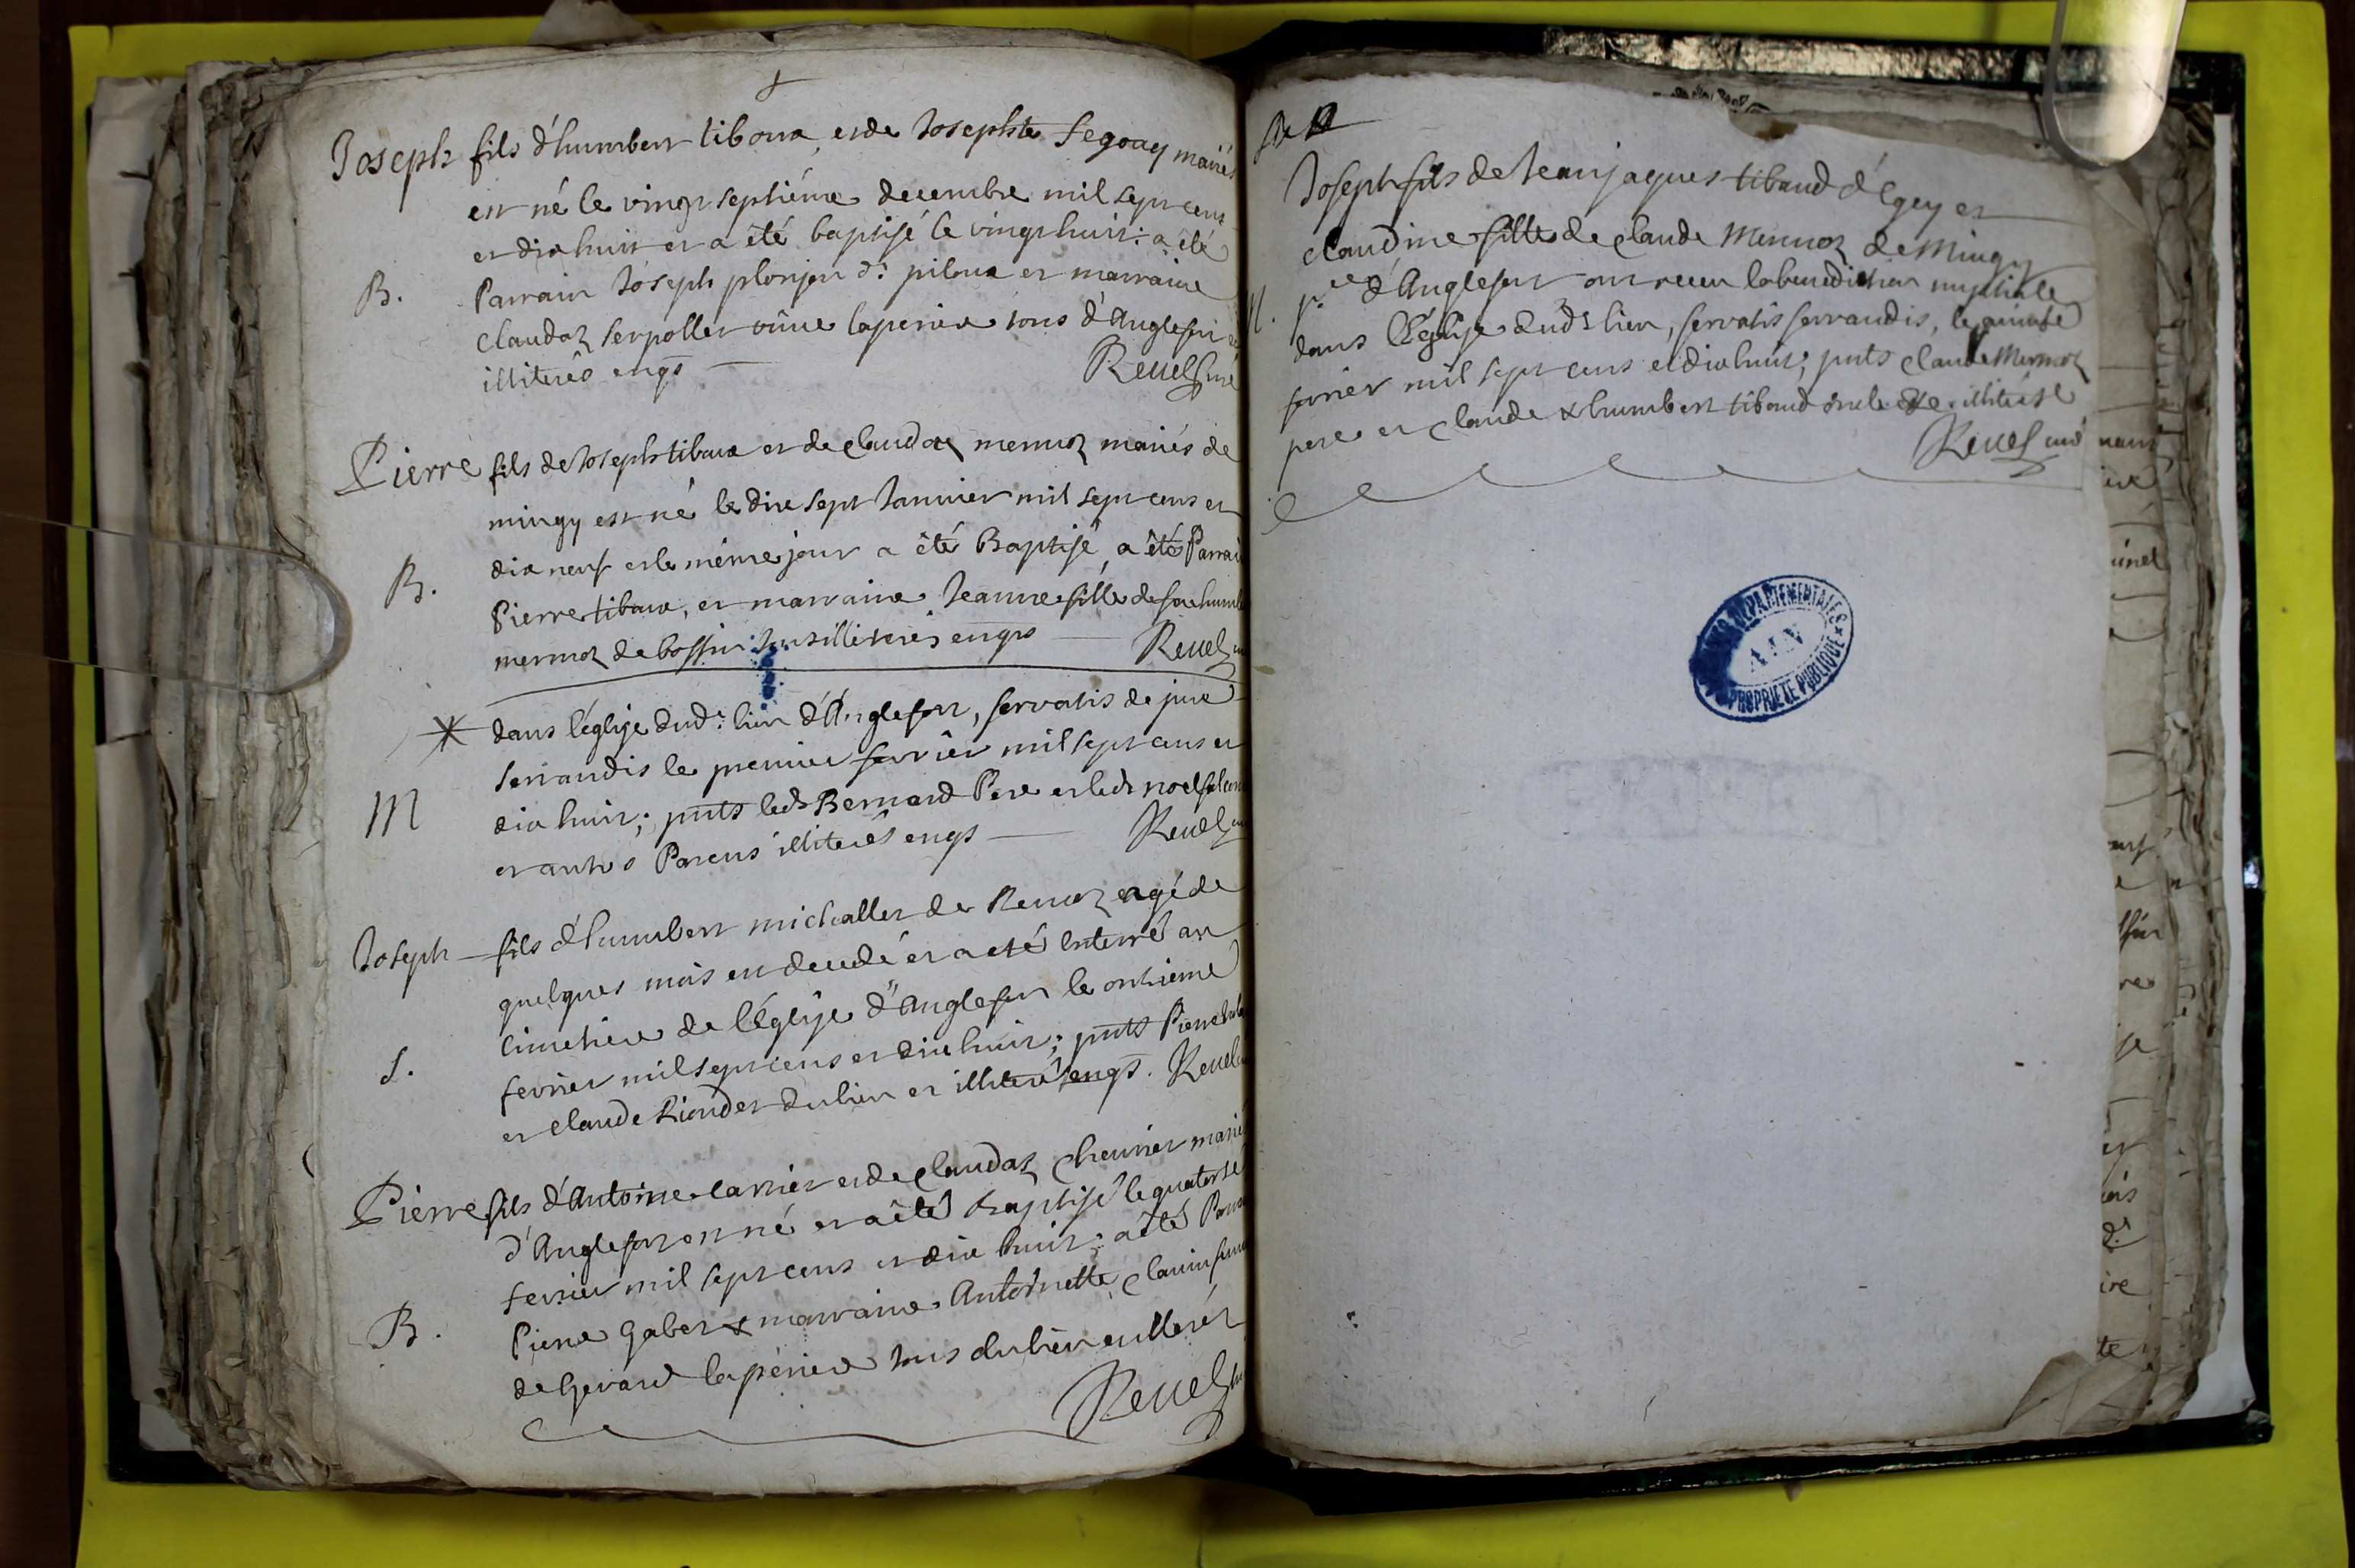 Joseph fils d'humbert tiboux, et de Josephte Segoay mariés
est né le vingt septiéme decembre mil sept cens
et dix huit et a été baptisé le vingt huit: a été
B.
Parrain Joseph plonjon dt piloux et marraine
Claudaz serpollet vûve laperier tous d'Anglefort
illiterês enqs
Reuel curé
Pierre fils de Joseph tiboux et de Claudaz mermoz mariés de
mingy est né le dixe sept Janvier mil sept cens et
dix neuf et le même jour a êté Baptisé, a êté Parrain
B.
Pierre tiboux, et marraine Jeanne fille de feu humbert
mermoz de bossin: tous illiterés enqs
Reuel
* dans l'église dudt lieu d'Anglefort, servatis de jure
servandis le premier fevrier mil sept cens et
M
dix huit; pnts ledt Bernard Pere et ledt noel
et autres Parens illiterês enqs
Reuel
Joseph fils d'humbert michallet de Remoz agé de
quelques mois est decedé et a eté enterré au
cimetiere de l'Eglise d'Anglefort le onzieme
S.
fevrier mil sept cens et dix huit; pnts Pierre
et Claude Rioudet du lieu et illiterés enqs. Reuel
Pierre fils d'Antoine carrier et de Claudaz Cheurier mariés
d'Anglefort est né et a êté baptisé le quatorze
fevrier mil sept cens et dix huit: a êté Parrain
B.
Pierre Gabet & marraine Antoinette Clarin femme
de Gerard laperier tous du lieu et illerés
Reuel
Joseph fils de Jean jaques tibaud d'Egey et
Claudine fille de Claude Mermoz de Mingy
M. psse d'Anglefort ont receu la benediction nuptiale
dans l'Eglise dudt lieu, servatis servandis, le
fevrier mil sept cens et dix huit; pnts Claude Mermoz
pere et Claude & humbert tibaud oncle illiterés
Reuel curé
DEPARTEMENTALES
AIN
PROPRIETE PUBLIQUE